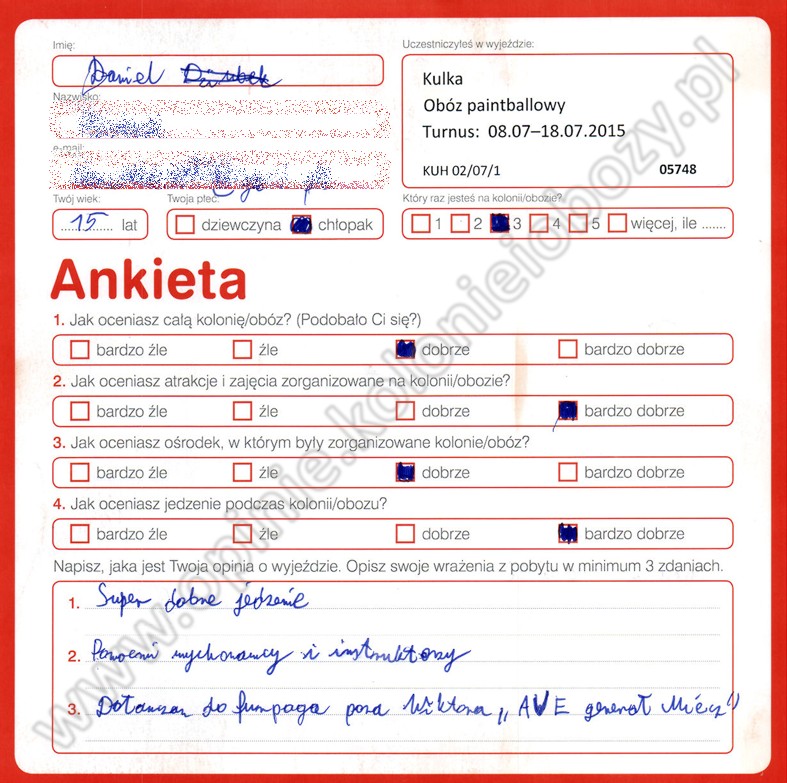 Imię:
Daniel
Uczestniczyłeś w wyjeździe:
Kulka
Obóz paintballowy
Turnus: 08.07–18.07.2015
KUH 02/07/1 05748
Nazwisko:
e-mail:
Twój wiek:
15 lat
Twoja płeć:
dziewczyna chłopak
Który raz jesteś na kolonii/obozie?
1 2 3 4 5 więcej, ile .......
Ankieta
1. Jak oceniasz całą kolonię/obóz? (Podobało Ci się?)
bardzo źle źle dobrze bardzo dobrze
2. Jak oceniasz atrakcje i zajęcia zorganizowane na kolonii/obozie?
bardzo źle źle dobrze bardzo dobrze
3. Jak oceniasz ośrodek, w którym były zorganizowane kolonie/obóz?
bardzo źle źle dobrze bardzo dobrze
4. Jak oceniasz jedzenie podczas kolonii/obozu?
bardzo źle źle dobrze bardzo dobrze
Napisz, jaka jest Twoja opinia o wyjeździe. Opisz swoje wrażenia z pobytu w minimum 3 zdaniach.
1. Super dobre jedzenie
2. wychowawcy i instruktorzy
3. do pana Wiktora „AVE generał
www.opinie.kolonieiobozy.pl